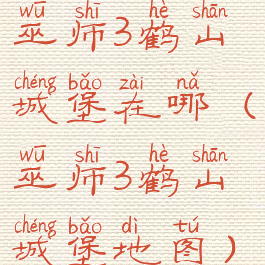 wū shī hè shān
巫师3鹤山
chéng bǎo zài nǎ
城堡在哪（
wū shī hè shān
巫师3鹤山
chéng bǎo dì tú
城堡地图）